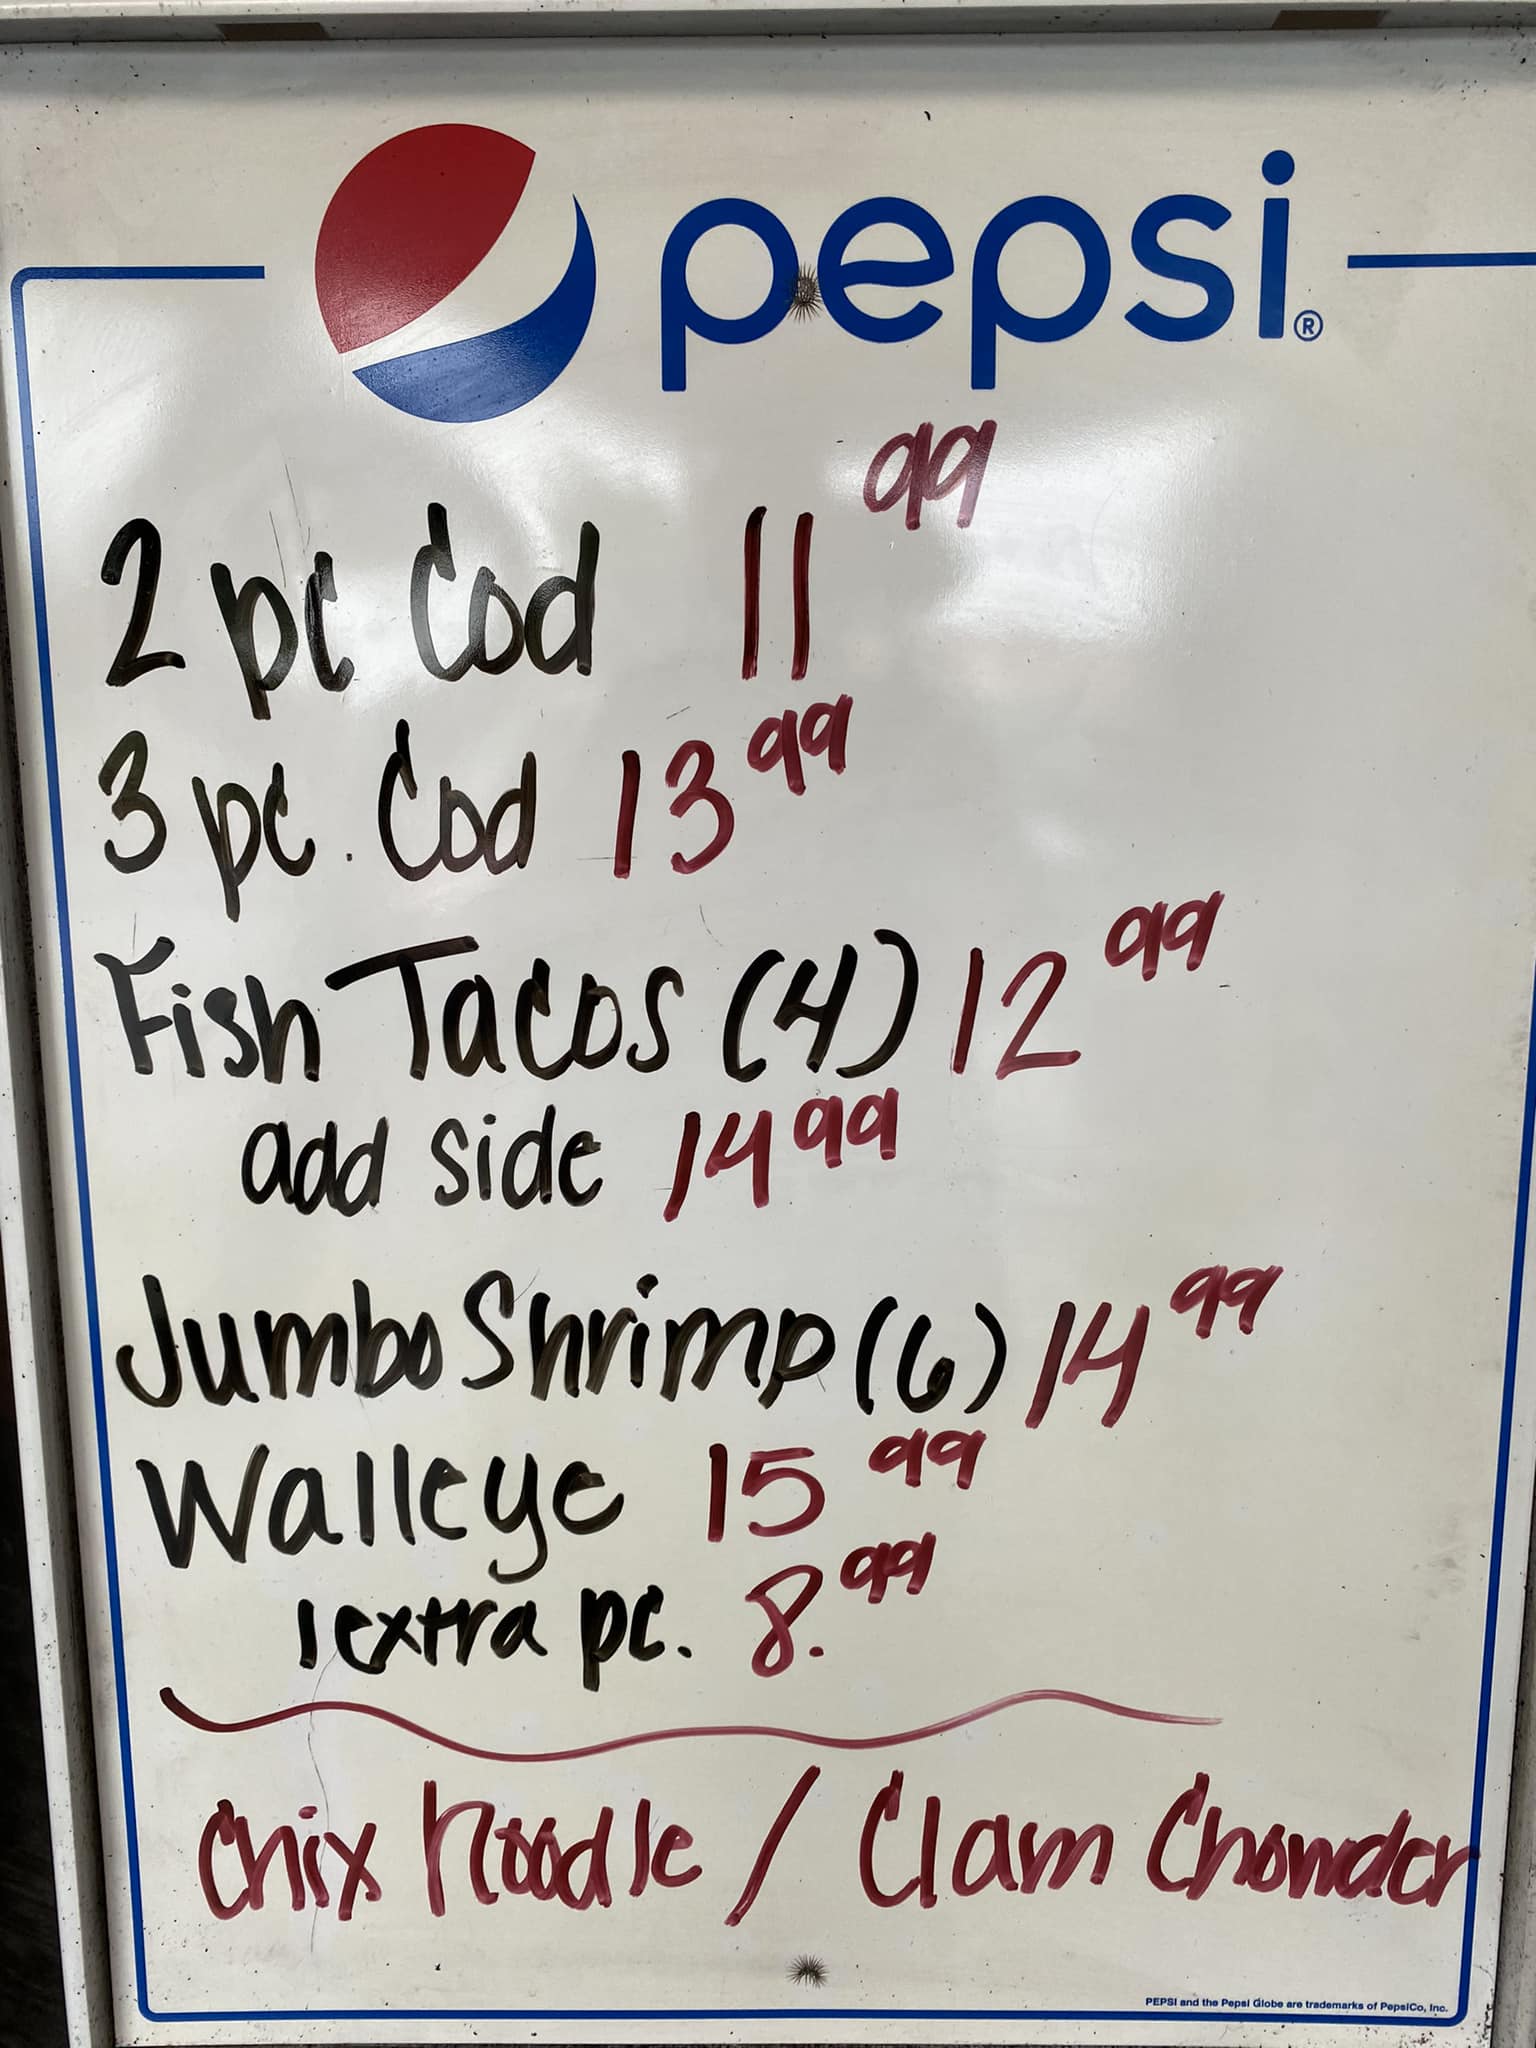 pepsi®
2 pc Cod 11 99
3 pc. Cod 13 99
Fish Tacos (4) 12 99
add side 14 99
Jumbo Shrimp (6) 14 99
Walleye 15 99
1 extra pc. 8.99
Chix Noodle / Clam Chowder
PEPSI and the Pepsi Globe are trademarks of PepsiCo, Inc.